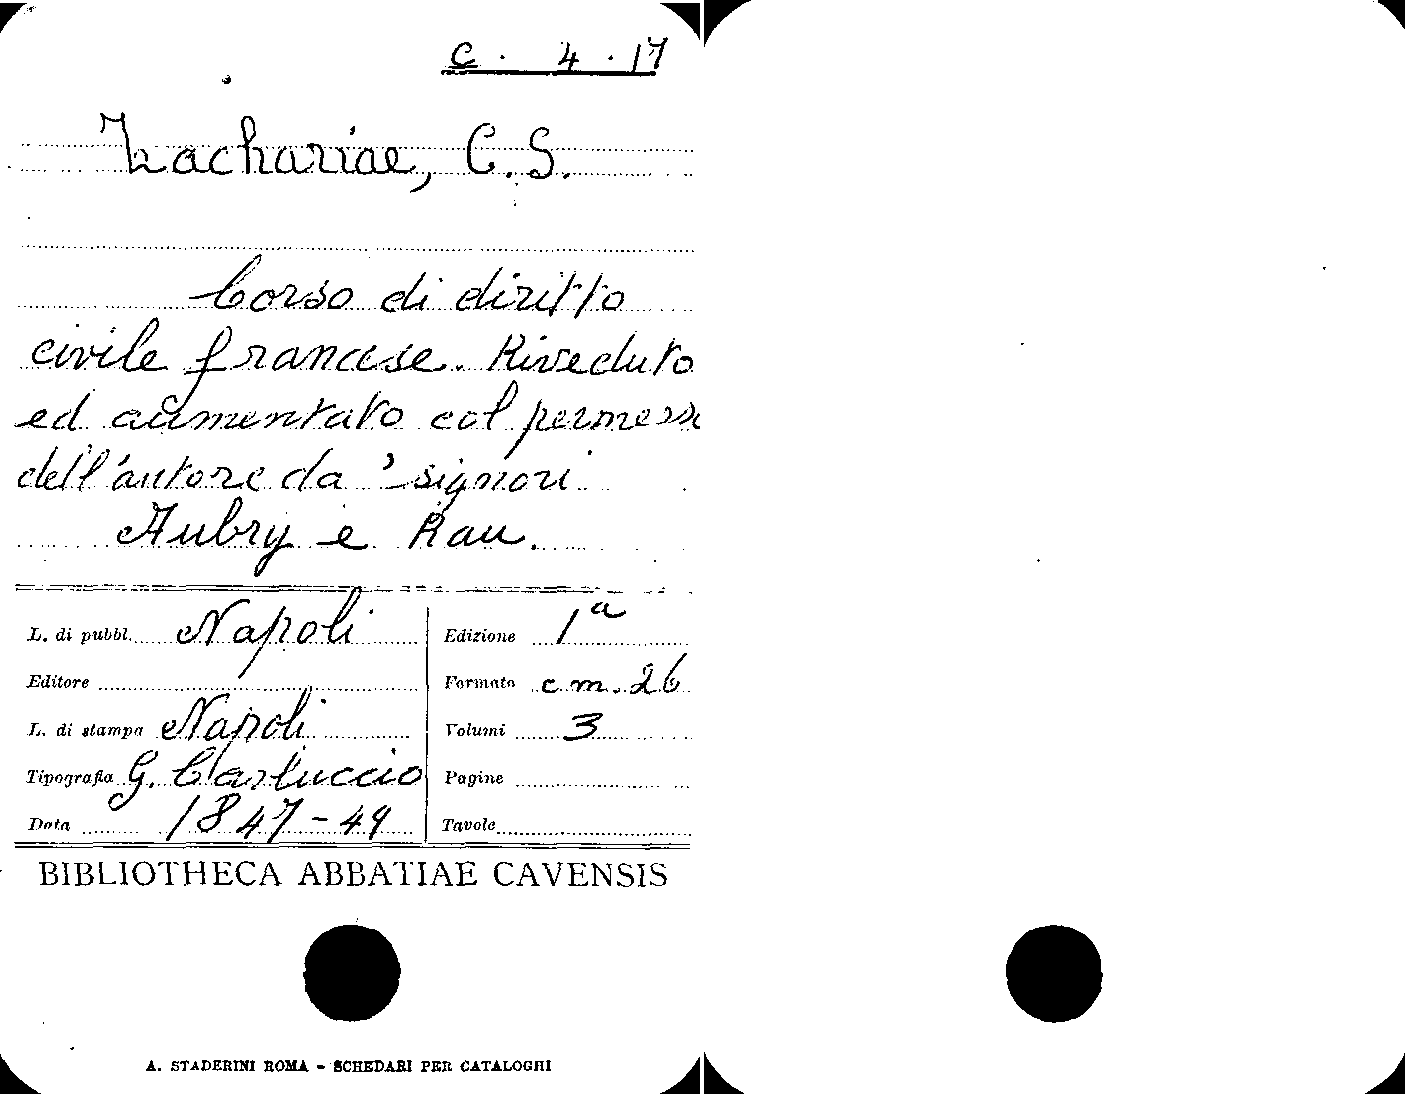 C. 4. 17
Zachariae, C. S.
Corso di diritto
civile francese. Riveduto
ed aumentato col permess
dell'autore da' signori
Aubry e Rau.
L. di pubbl. Napoli
Editore
L. di stampa Napoli
Tipografia G. Carluccio
Data 1847-49
Edizione 1a
Formato cm. 26
Volumi 3
Pagine
Tavole
BIBLIOTHECA ABBATIAE CAVENSIS
A. STADERINI ROMA - SCHEDARI PER CATALOGHI